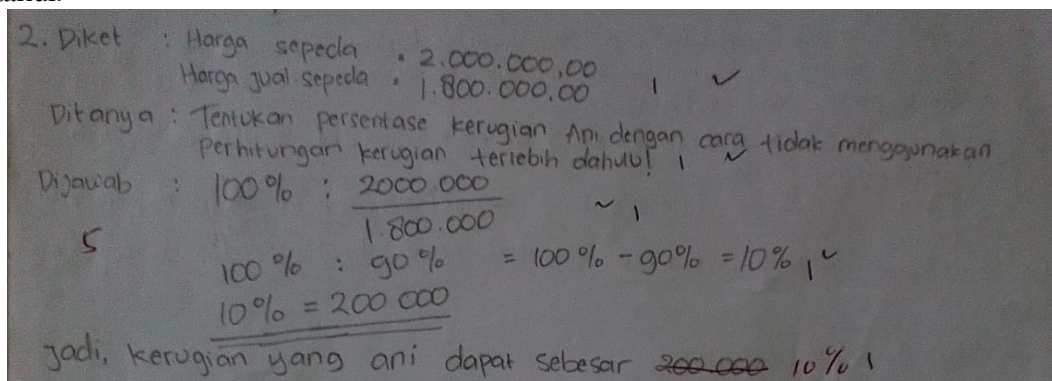 2. Diket : Harga sepeda = 2.000.000,00
Harga jual sepeda = 1.800.000,00 1 ✓
Ditanya : Tentukan persentase kerugian Ani dengan cara tidak menggunakan
perhitungan kerugian terlebih dahulu! 1 ✓
Dijawab : 100% : 2000.000
1.800.000 ✓ 1
5
100% : 90% = 100% - 90% = 10% 1 ✓
10% = 200 000
Jadi, kerugian yang ani dapat sebesar 200.000 10% 1